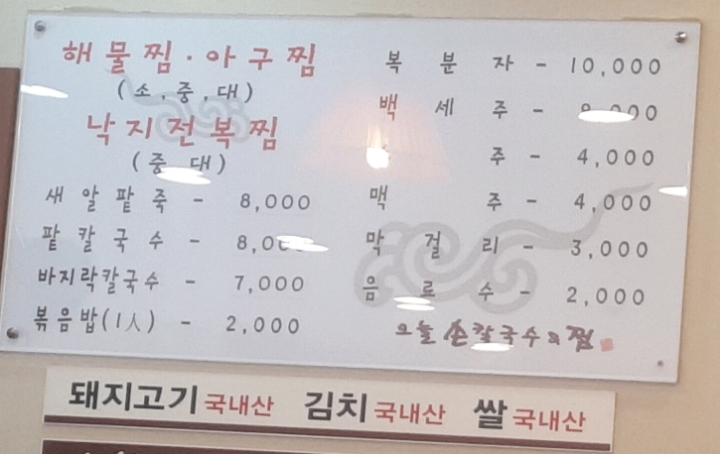 해물찜·아구찜
(소,중,대)
낙지전복찜
(중 대)
새알팥죽 - 8,000
팥칼국수 - 8,000
바지락칼국수 - 7,000
볶음밥(1人) - 2,000
복분자 - 10,000
백세주 -
주 - 4,000
맥주 - 4,000
막걸리 - 3,000
음료수 - 2,000
오늘 손칼국수&찜
돼지고기 국내산 김치 국내산 쌀 국내산